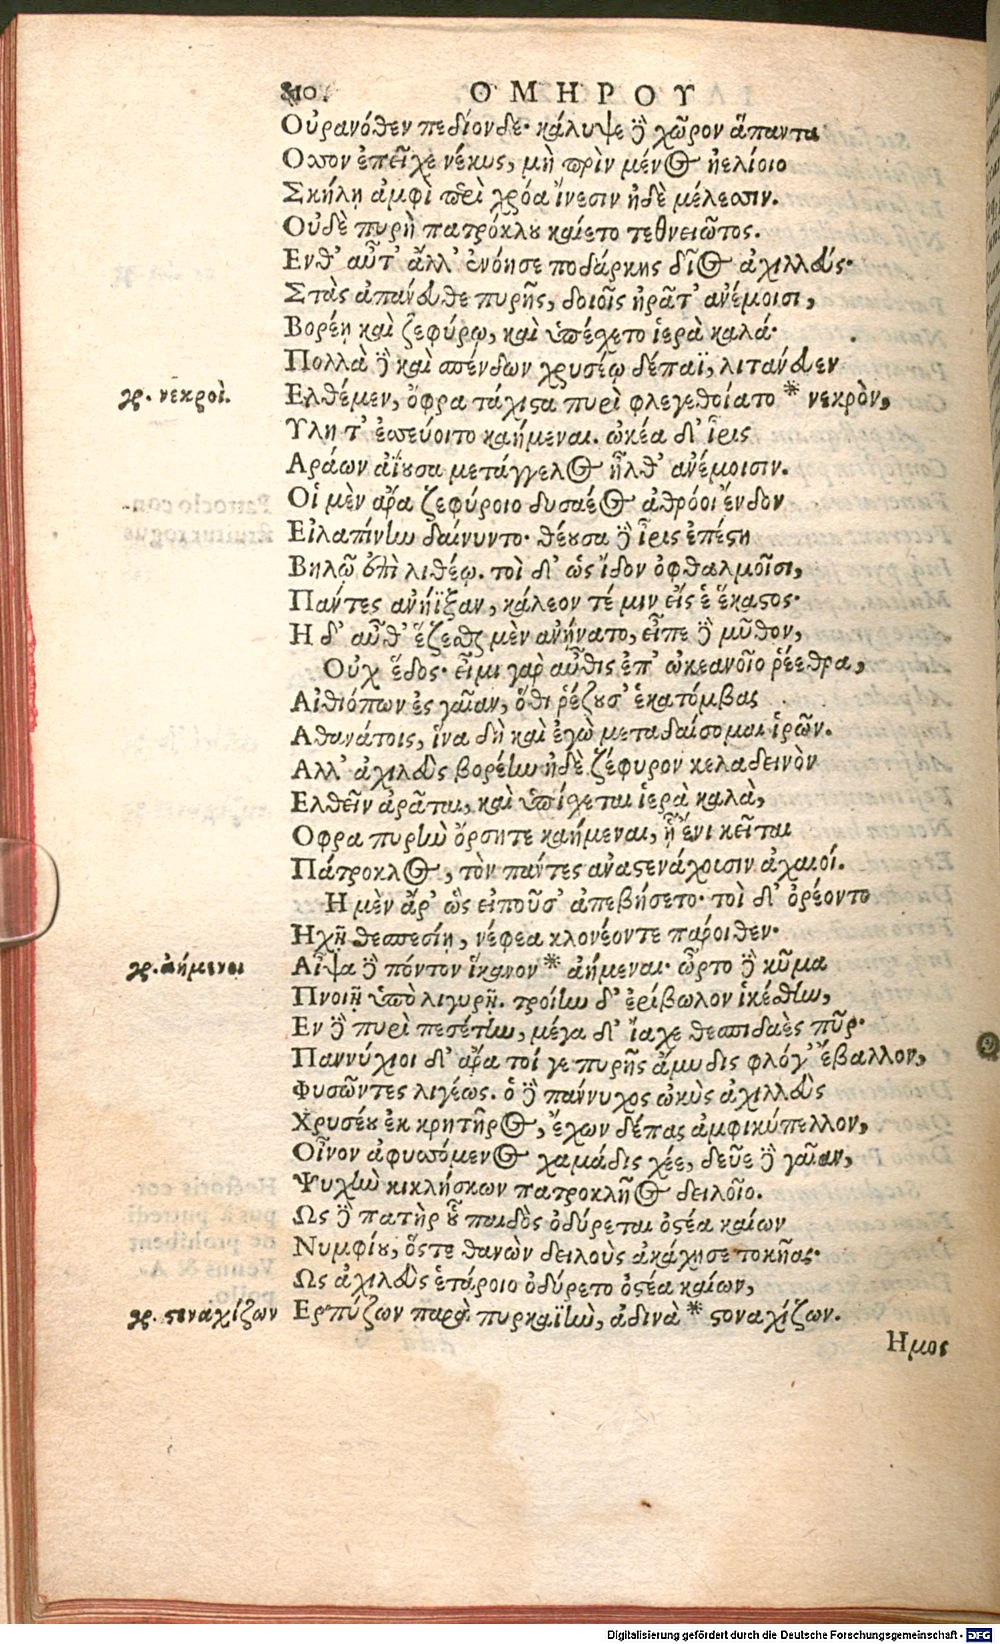 810. ΟΜΗΡΟΥ
Οὐρανόθεν πεδίονδε· κάλυψε δὲ χῶρον ἅπαντα
Οσσον ἐπεῖχε νέκυς, μὴ πρὶν μένος ἠελίοιο
Σκήλῃ ἀμφὶ περὶ χρόα ἴνεσιν ἠδὲ μέλεσσιν.
Οὐδὲ πυρὴ πατρόκλου καίετο τεθνειῶτος.
Ενθ' αὖτ' ἄλλ' ἐνόησε ποδάρκης δῖος ἀχιλλεύς·
Στὰς ἀπάνευθε πυρῆς, δοιοῖς ἠρᾶτ' ἀνέμοισι,
Βορέῃ καὶ ζεφύρῳ, καὶ ὑπέχετο ἱερὰ καλά·
Πολλὰ δὲ καὶ σπένδων χρυσέῳ δέπαϊ, λιτάνευεν
γρ. νεκροὶ. Ελθέμεν, ὄφρα τάχιστα πυρὶ φλεγεθοίατο * νεκρὸν,
Υλη τ' ἐσσεύοιτο καήμεναι. ὠκέα δ' ἶρις
Αράων ἀΐουσα μετάγγελος ἦλθ' ἀνέμοισιν.
Οἱ μὲν ἄρα ζεφύροιο δυσαέος ἀθρόοι ἔνδον
Εἰλαπίνην δαίνυντο· θέουσα δὲ ἶρις ἐπέστη
Βηλῷ ἐπὶ λιθέῳ. τοὶ δ' ὡς ἴδον ὀφθαλμοῖσι,
Πάντες ἀνήϊξαν, κάλεον τέ μιν εἰς ἓ ἕκαστος·
Η δ' αὖθ' ἕζεσθαι μὲν ἀνήνατο, εἶπε δὲ μῦθον,
Οὐχ ἕδος· εἶμι γὰρ αὖθις ἐπ' ὠκεανοῖο ῥέεθρα,
Αἰθιόπων ἐς γαῖαν, ὅθι ῥέζουσ' ἑκατόμβας
Αθανάτοις, ἵνα δὴ καὶ ἐγὼ μεταδαίσομαι ἱρῶν.
Αλλ' ἀχιλεὺς βορέην ἠδὲ ζέφυρον κελαδεινὸν
Ελθεῖν ἀρᾶται, καὶ ὑπίσχεται ἱερὰ καλὰ,
Οφρα πυρὴν ὄρσητε καήμεναι, ᾗ ἔνι κεῖται
Πάτροκλος, τὸν πάντες ἀναστενάχουσιν ἀχαιοί.
Η μὲν ἄρ' ὣς εἰποῦσ' ἀπεβήσετο· τοὶ δ' ὀρέοντο
Ηχῇ θεσπεσίῃ, νέφεα κλονέοντε πάροιθεν·
γρ. ἀήμενοι Αἶψα δὲ πόντον ἵκανον * ἀήμεναι· ὦρτο δὲ κῦμα
Πνοιῇ ὑπὸ λιγυρῇ. τροίην δ' ἐρίβωλον ἱκέσθην,
Εν δὲ πυρὶ πεσέτην, μέγα δ' ἴαχε θεσπιδαὲς πῦρ·
Παννύχιοι δ' ἄρα τοί γε πυρῆς ἄμυδις φλόγ' ἔβαλλον,
Φυσῶντες λιγέως. ὁ δὲ πάννυχος ὠκὺς ἀχιλλεὺς
Χρυσέου ἐκ κρητῆρος, ἔχων δέπας ἀμφικύπελλον,
Οἶνον ἀφυσσόμενος χαμάδις χέε, δεῦε δὲ γαῖαν,
Ψυχὴν κικλήσκων πατροκλῆος δειλοῖο.
Ως δὲ πατὴρ οὗ παιδὸς ὀδύρεται ὀστέα καίων
Νυμφίου, ὅστε θανὼν δειλοὺς ἀκάχησε τοκῆας·
Ως ἀχιλεὺς ἑτάροιο ὀδύρετο ὀστέα καίων,
γρ. στεναχίζων Ερπύζων παρὰ πυρκαϊὴν, ἀδινὰ * στοναχίζων.
Ημος
Digitalisierung gefördert durch die Deutsche Forschungsgemeinschaft - DFG